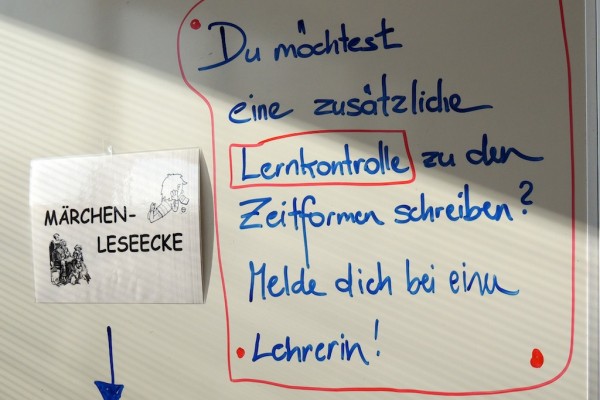 MÄRCHEN-
LESEECKE
Du möchtest
eine zusätzliche
Lernkontrolle zu den
Zeitformen schreiben?
Melde dich bei einer
Lehrerin!